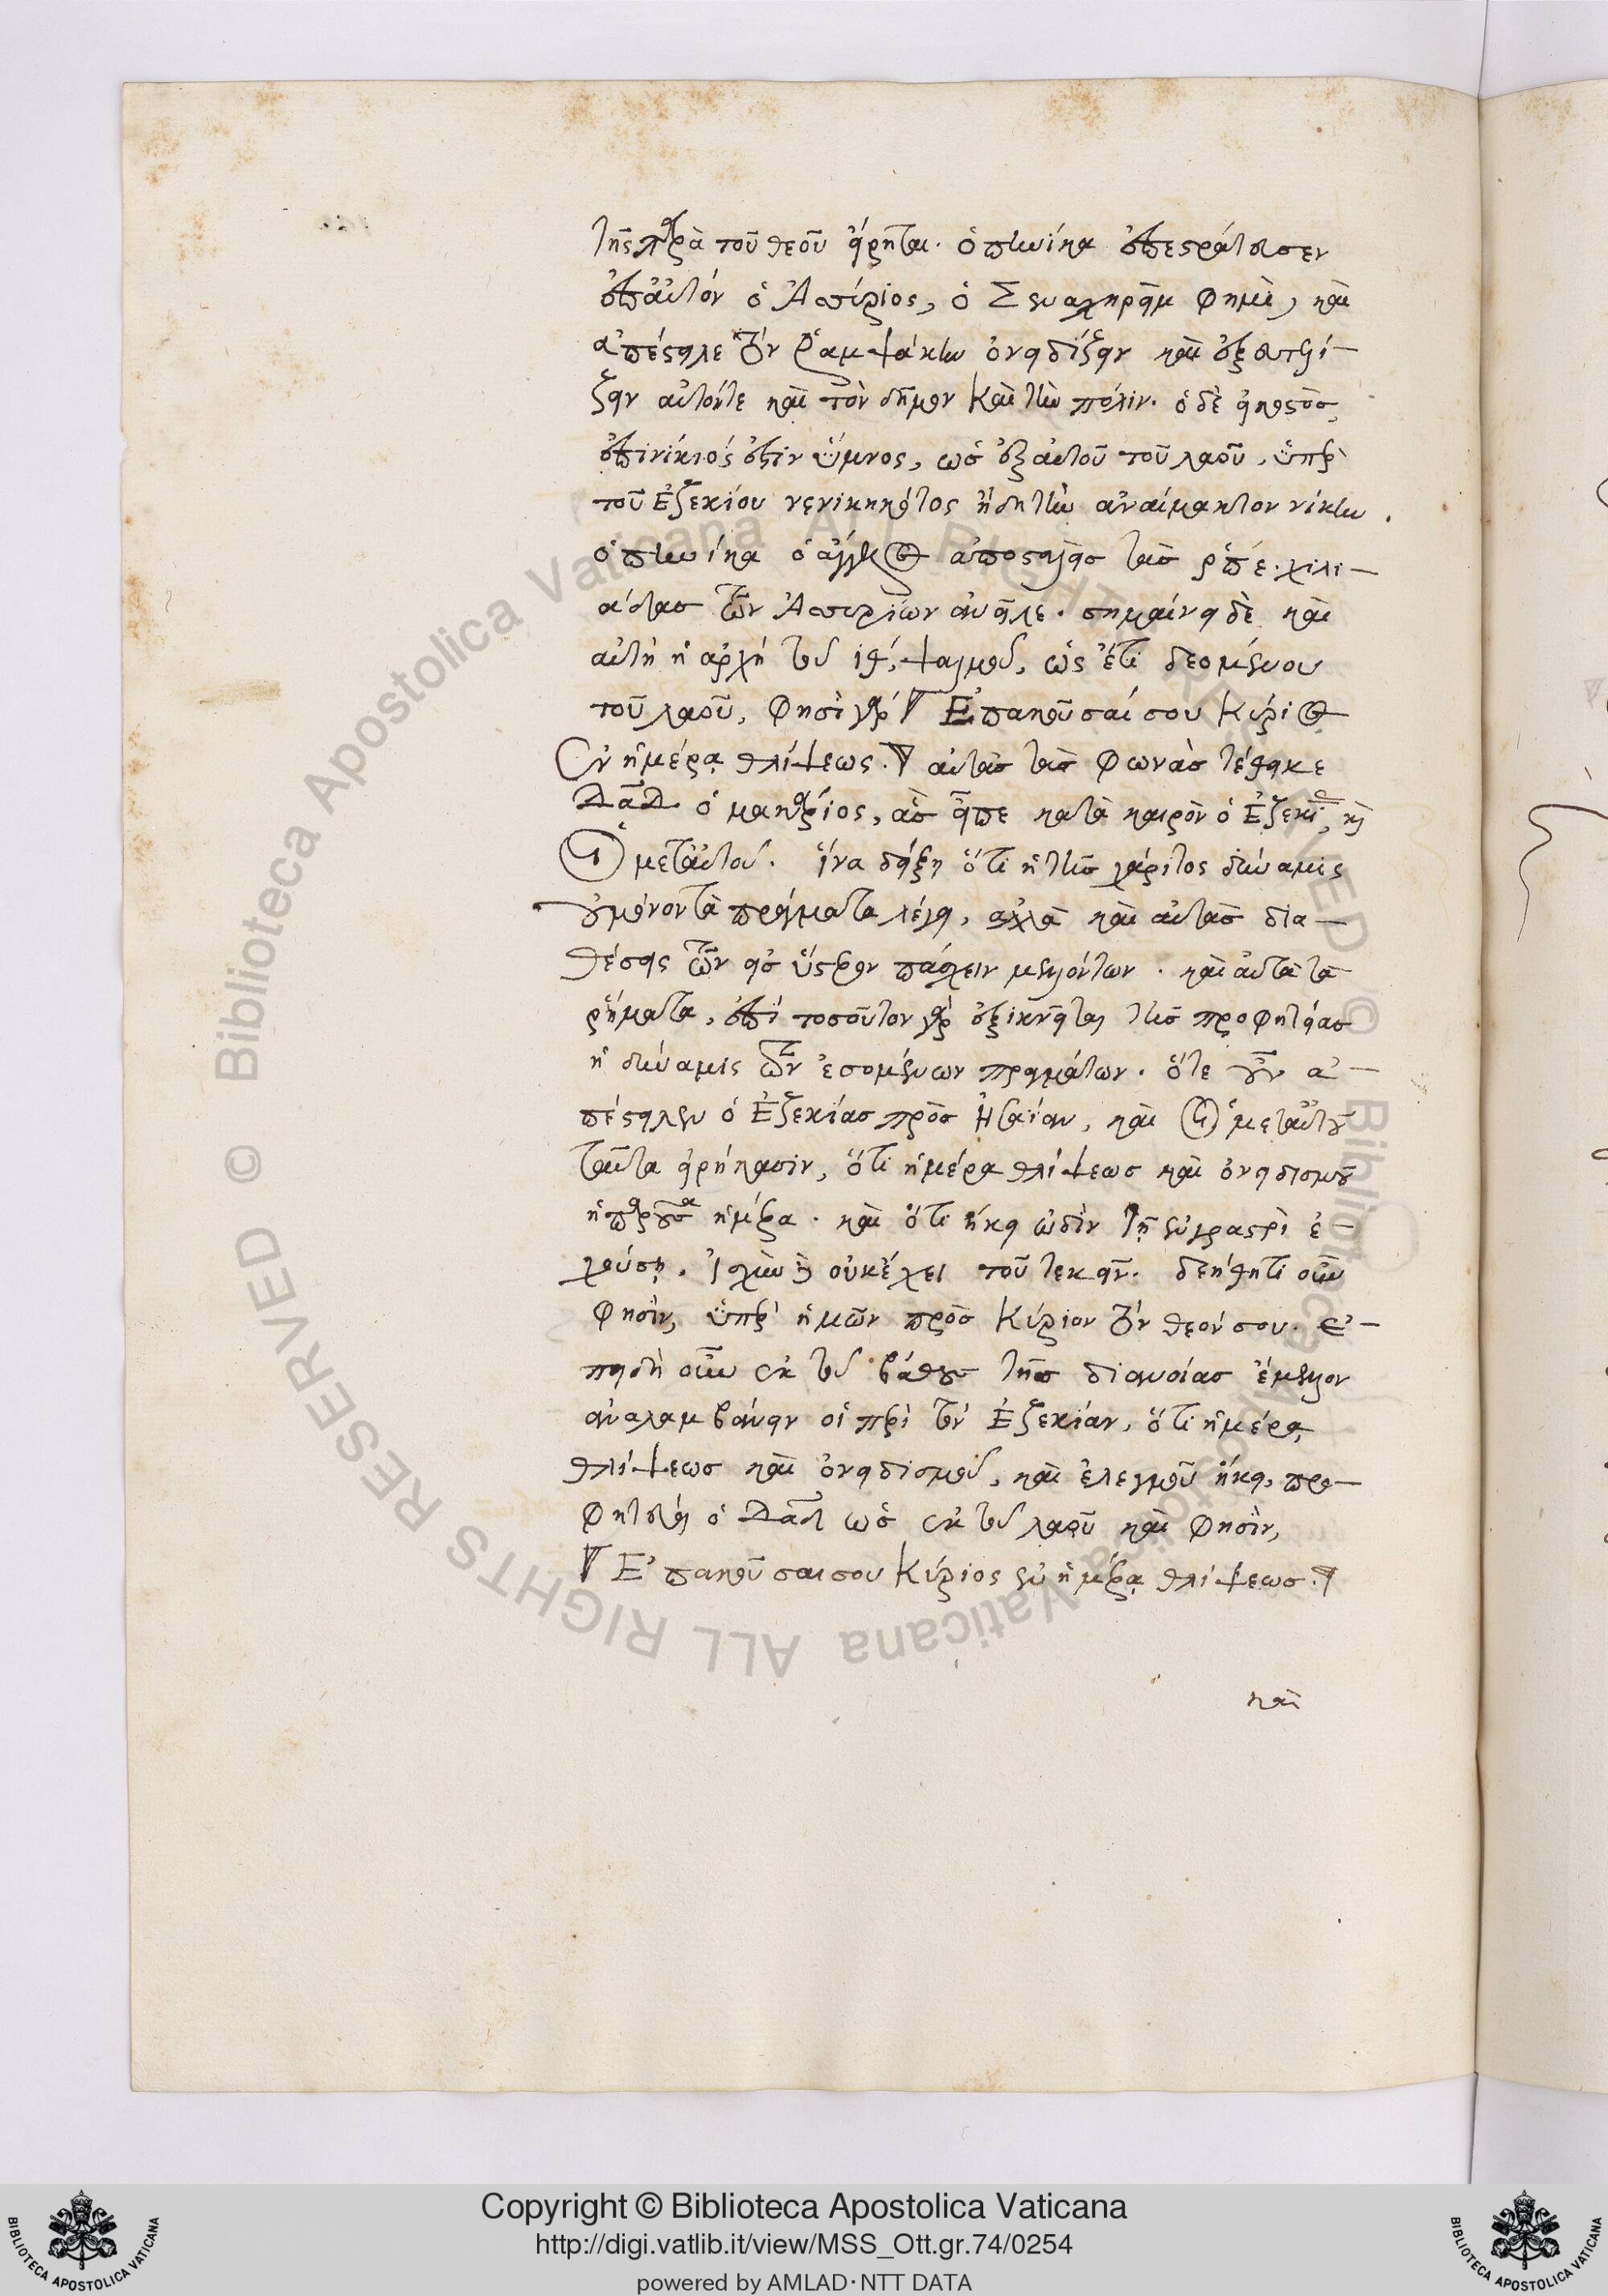 τῆς παρὰ τοῦ θεοῦ εἴρηται. ὁπηνίκα ἐπεστράτευσεν
ἐπαὐτὸν ὁ Ἀσσύριος, ὁ Σεναχηρεὶμ φημὶ, καὶ
ἀπέστειλε τὸν Ῥαμψάκην ὀνειδίζειν καὶ ἐξευτελί-
ζειν αὐτόντε καὶ τὸν δῆμον καὶ τὴν πόλιν. ὁ δὲ εἰκοστὸς
ἐπινίκιός ἐστιν ὕμνος, ὡς ἐξαὐτοῦ τοῦ λαοῦ, ὑπὲρ
τοῦ Ἐζεκίου νενικηκότος ἤδη τὴν ἀναίμακτον νίκην.
ὁπηνίκα ὁ ἄγγελος ἀποσταλεὶς τὰς ρπε χιλι-
άδας τῶν Ἀσσυρίων ἀνεῖλε. σημαίνει δὲ καὶ
αὐτὴ ἡ ἀρχὴ τοῦ ιθ, ψαλμοῦ, ὡς ἔτι δεομένου
τοῦ λαοῦ, φησὶ γὰρ Ἐπακούσαί σου Κύριος
ἐν ἡμέρᾳ θλίψεως. αὐτὰς τὰς φωνὰς τέθεικε
Δαδ ὁ μακάριος, ἃς εἶπε κατὰ καιρὸν ὁ Ἐζεκίας, καὶ
οἱ μεταὐτοῦ. ἵνα δείξῃ ὅτι ἡ τῆς χάριτος δύναμις
οὐ μόνον τὰ πράγματα λέγει, ἀλλὰ καὶ αὐτὰς δια-
θέσεις τῶν εἰς ὕστερον πάσχειν μελλόντων. καὶ αὐτὰ τὰ
ῥήματα, ἐπὶ τοσοῦτον γὰρ ἐξικνεῖται τῆς προφητείας
ἡ δύναμις τῶν ἐσομένων πραγμάτων. ὅτε οὖν ἀ-
πέστειλεν ὁ Ἐζεκίας πρὸς Ἡσαΐαν, καὶ οἱ μεταὐτοῦ
ταῦτα εἰρήκασιν, ὅτι ἡμέρα θλίψεως καὶ ὀνειδισμοῦ
ἡ παροῦσα ἡμέρα. καὶ ὅτι ἥκει ὠδὶν τῇ ἐνγαστρὶ ἐ-
χούσῃ. ἰσχὺν δὲ οὐκ ἔχει τοῦ τεκεῖν. δεήθητι οὖν
φησὶν, ὑπὲρ ἡμῶν πρὸς Κύριον τὸν θεόν σου. ἐ-
πειδὴ οὖν ἐκ τοῦ βάθους τῆς διανοίας ἔμελλον
ἀναλαμβάνειν οἱ περὶ τὸν Ἐζεκίαν, ὅτι ἡμέρα
θλίψεως καὶ ὀνειδισμοῦ, καὶ ἐλεγμοῦ ἥκει, προ-
φητεύει ὁ Δαδ ὡς ἐκ τοῦ λαοῦ καὶ φησὶν,
Ἐπακούσαι σου Κύριος ἐν ἡμέρᾳ θλίψεως.
καὶ
© Biblioteca Apostolica Vaticana ALL RIGHTS RESERVED © Biblioteca Apostolica Vaticana ALL RIGHTS RESERVED
Copyright © Biblioteca Apostolica Vaticana
http://digi.vatlib.it/view/MSS_Ott.gr.74/0254
powered by AMLAD·NTT DATA
BIBLIOTECA APOSTOLICA VATICANA
BIBLIOTECA APOSTOLICA VATICANA